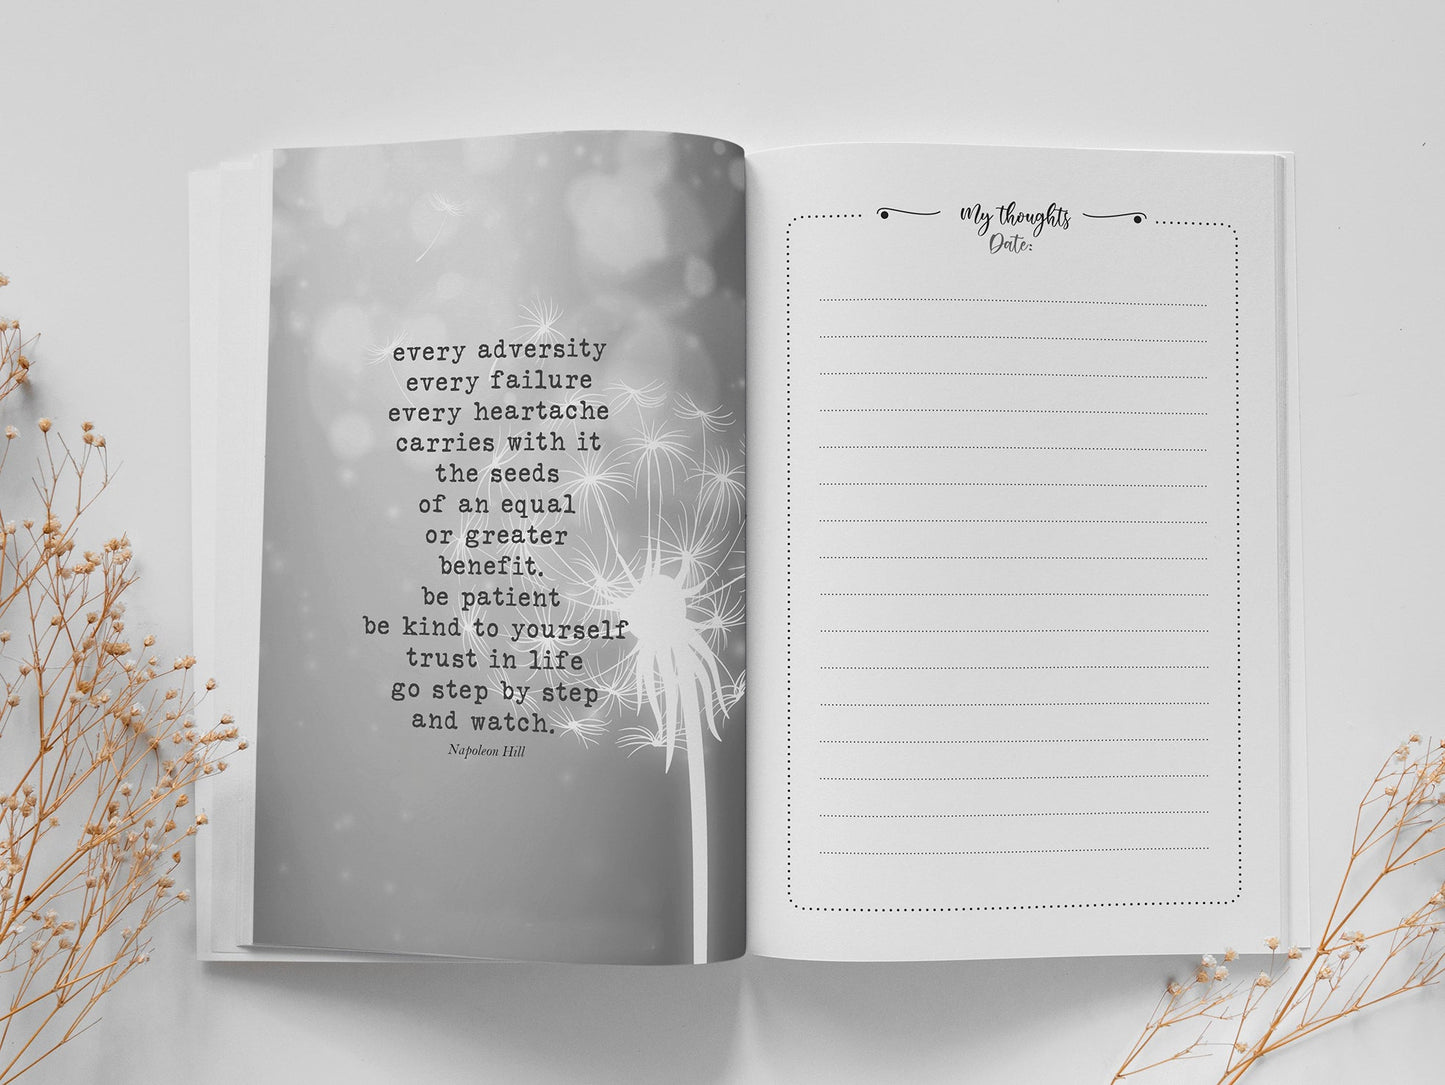 every adversity
every failure
every heartache
carries with it
the seeds
of an equal
or greater
benefit.
be patient
be kind to yourself
trust in life
go step by step
and watch.
Napoleon Hill
My thoughts
Date: